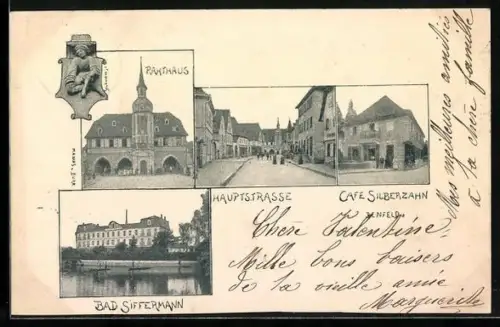 RATHAUS
HAUPTSTRASSE
CAFÉ SILBERZAHN
BENFELD
BAD SIFFERMANN
Chère Valentine.
Mille bons baisers
de ta vieille amie
Marguerite
Mes meilleures amitiés
à ta chère famille